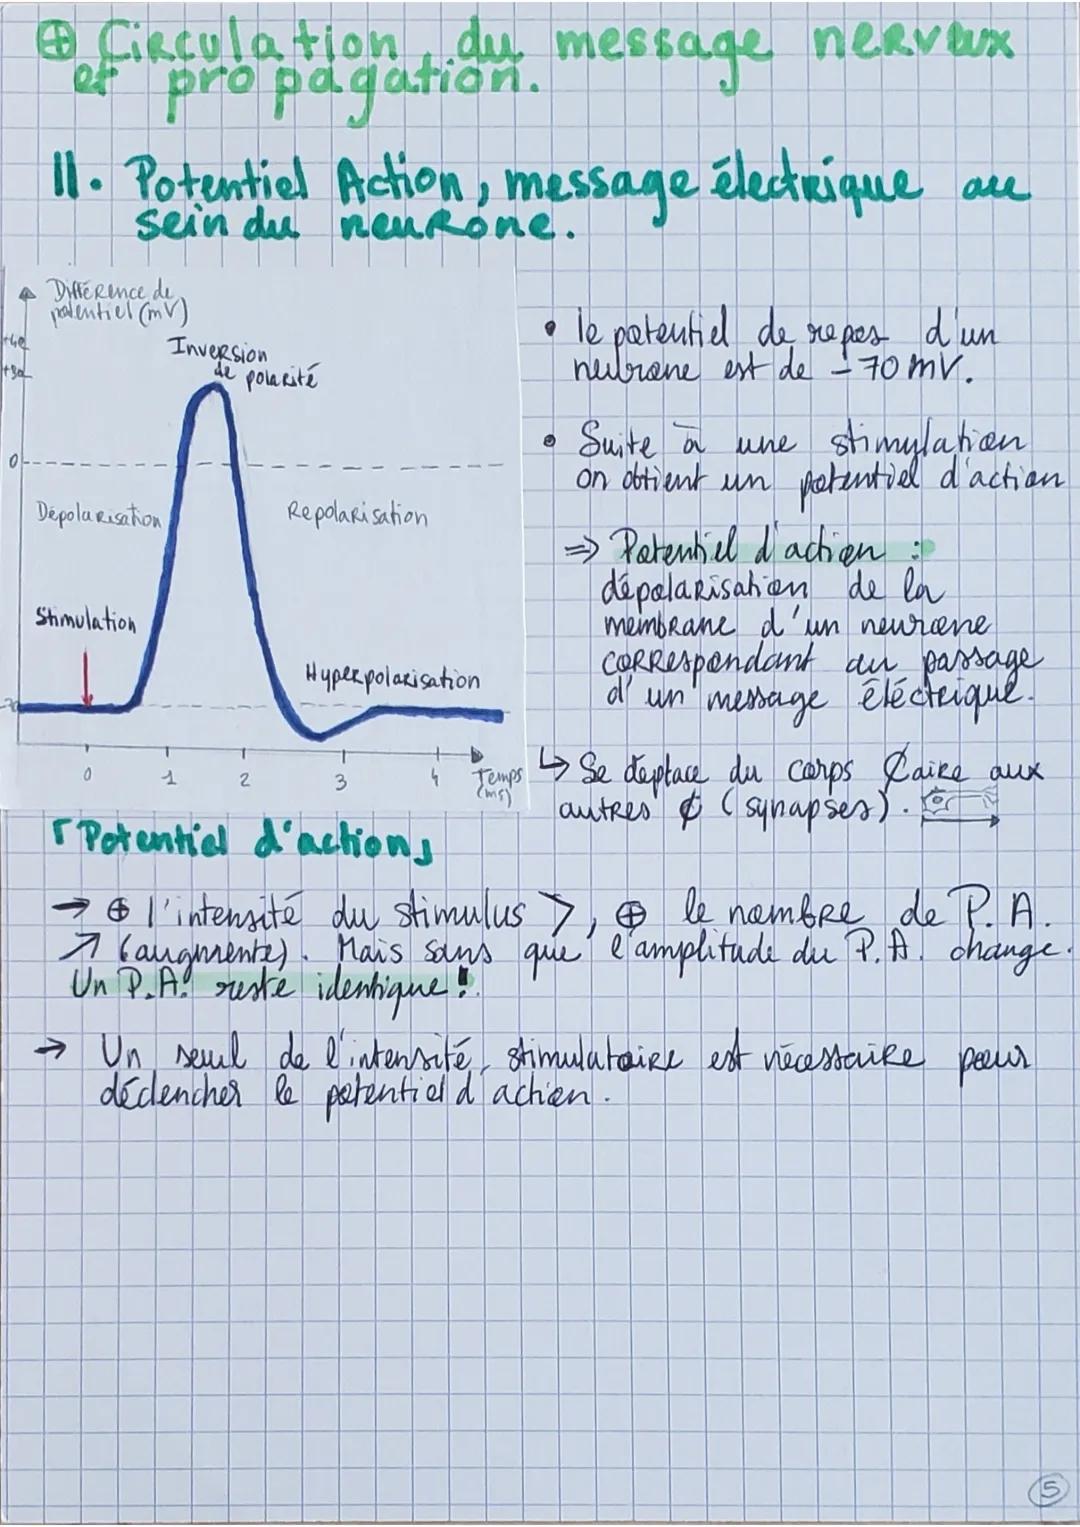 ⊕ Circulation du message nerveux
et propagation.
II. Potentiel Action, message électrique au
sein du neurone.
Différence de
potentiel (mV)
+40
+30
Inversion
de polarité
0
Dépolarisation
Repolarisation
Stimulation
Hyperpolarisation
-70
0 1 2 3 4 Temps
(ms)
• le potentiel de repos d'un
neurone est de -70 mV.
• Suite à une stimulation
on obtient un potentiel d'action
⇒ Potentiel d'action :
dépolarisation de la
membrane d'un neurone
correspondant au passage
d'un message éléctrique.
↳ Se déplace du corps ₵aire aux
autres ₵ (synapses).
「Potentiel d'action」
→ ⊕ l'intensité du stimulus >, ⊕ le nombre de P.A.
↗ (augmente). Mais sans que l'amplitude du P.A. change.
Un P.A. reste identique !.
→ Un seuil de l'intensité stimulatoire est nécessaire pour
déclencher le potentiel d'action.
5